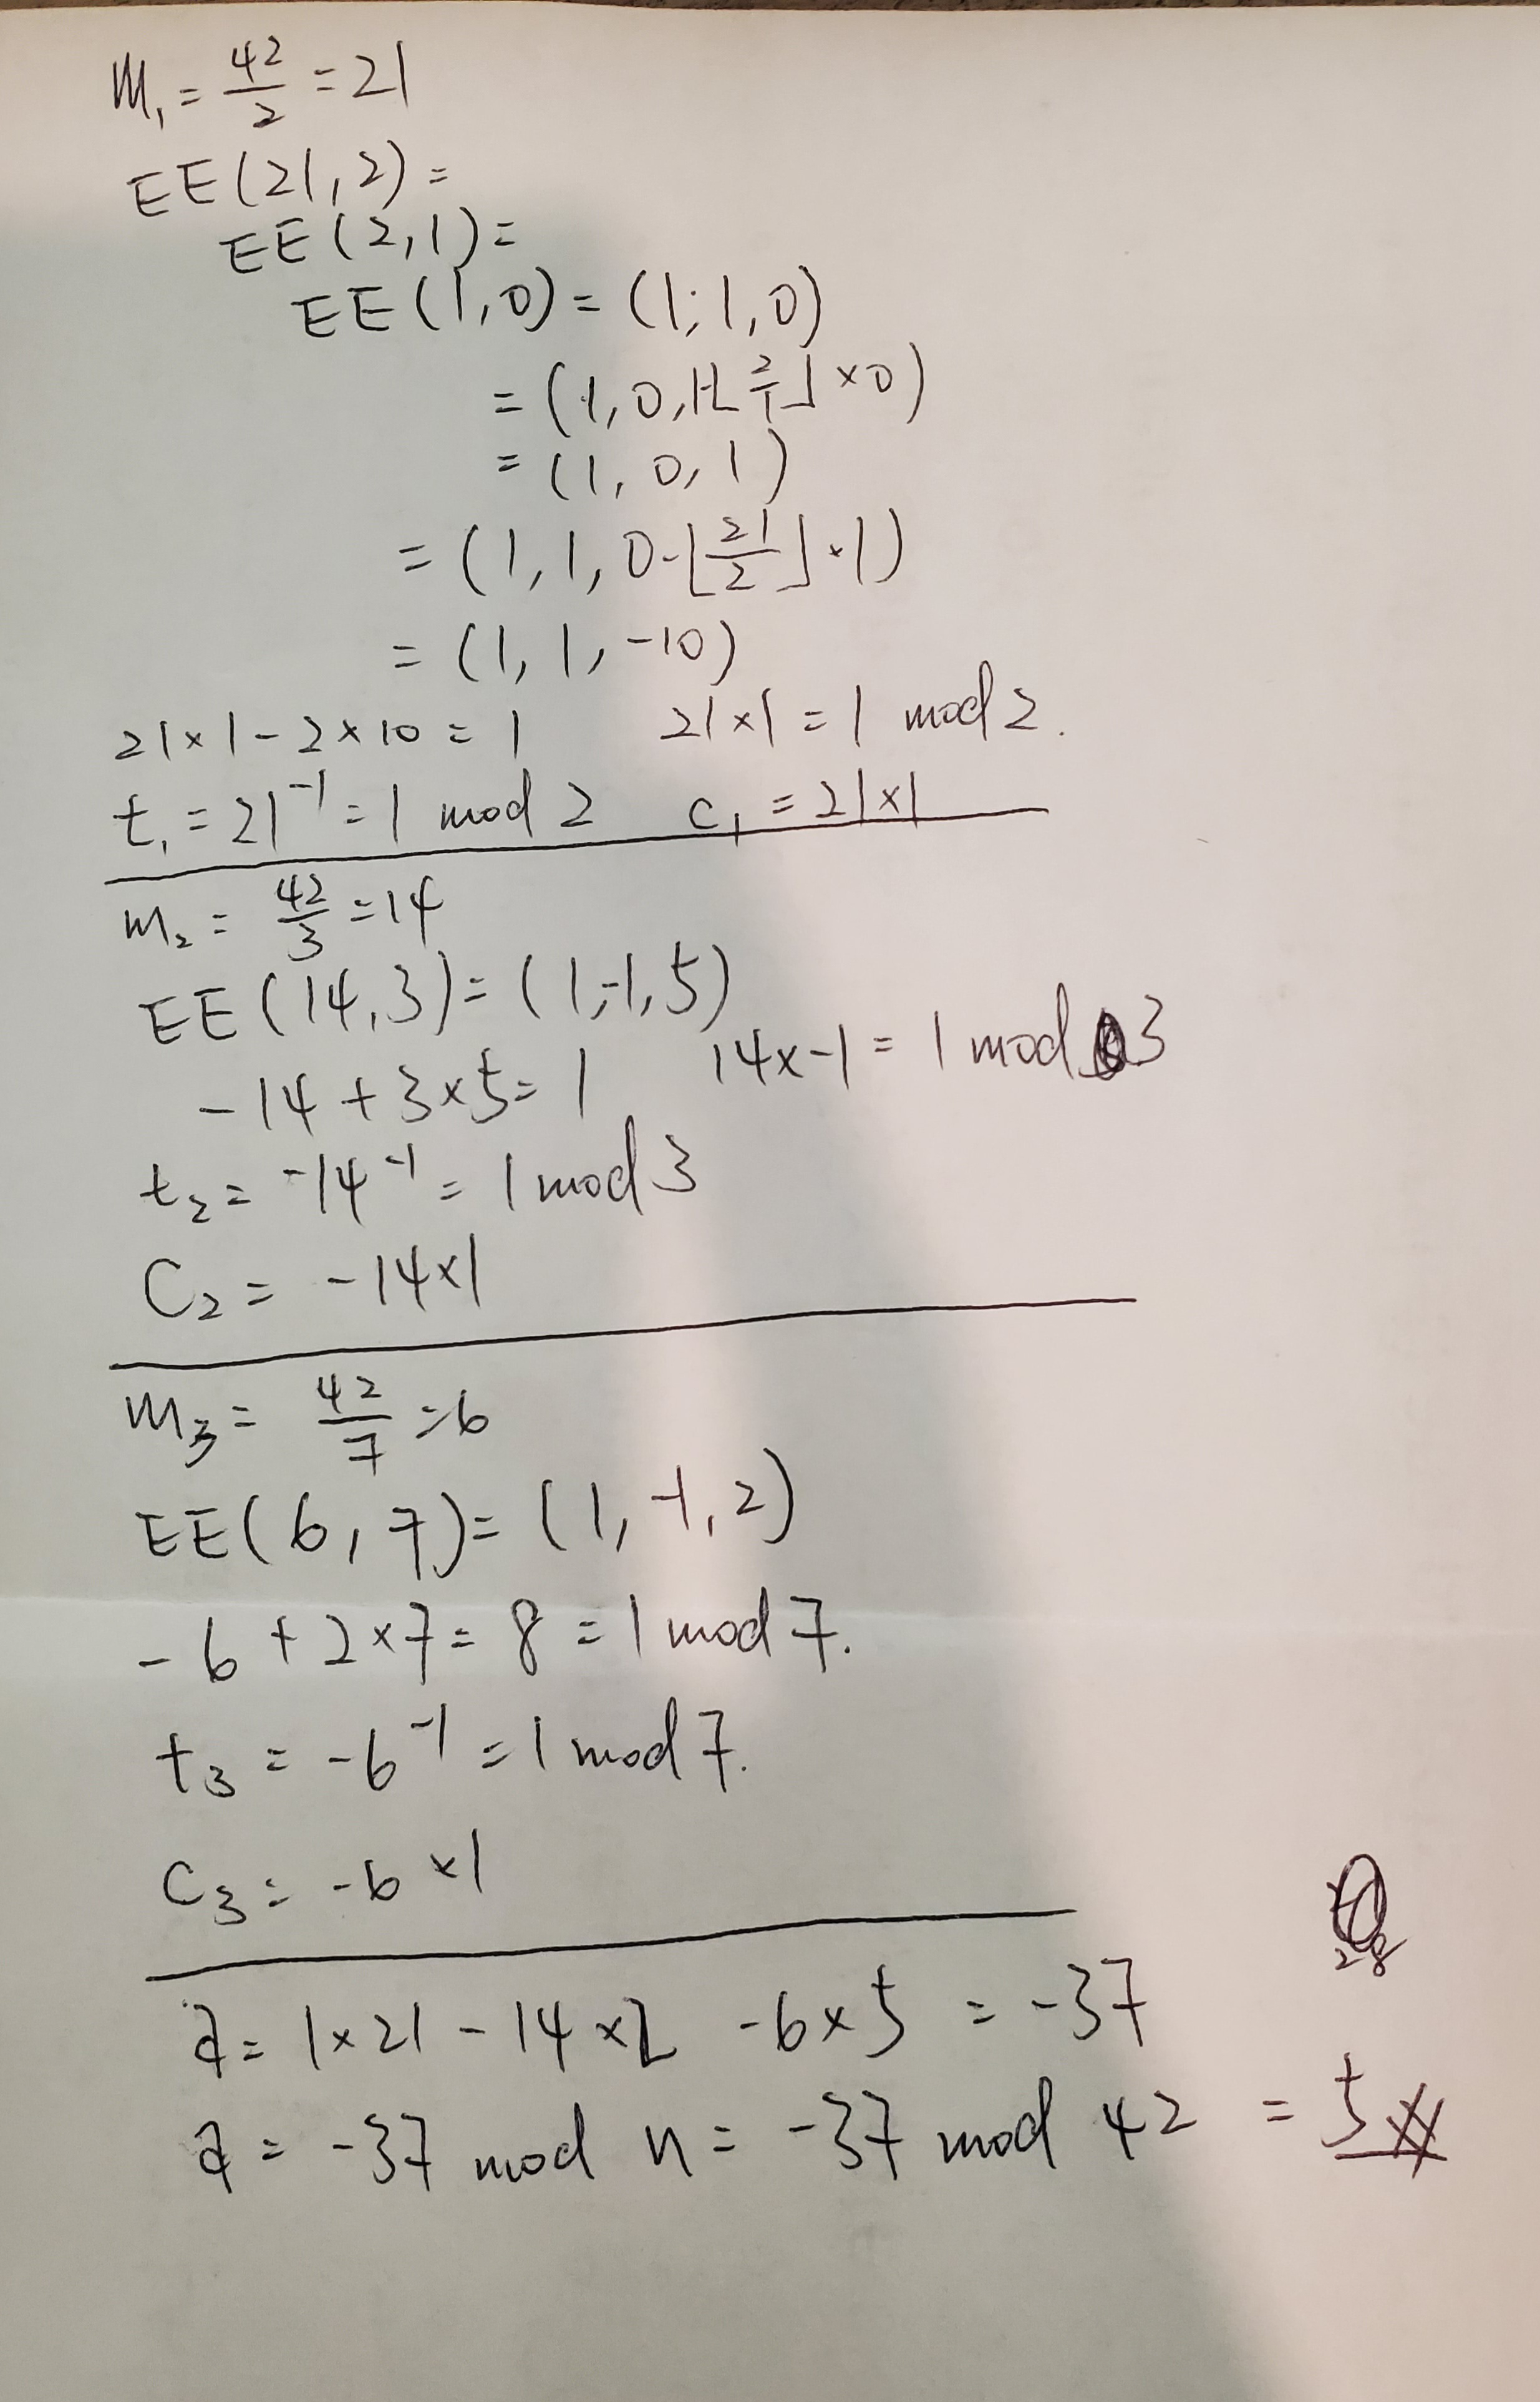 m₁ = 42/2 = 21
EE(21,2) =
EE(2,1) =
EE(1,0) = (1,1,0)
= (1,0,1-⌊2/1⌋×0)
= (1,0,1)
= (1,1,0-⌊21/2⌋·1)
= (1,1,-10)
21×1-2×10=1 21×1=1 mod 2.
t₁ = 21⁻¹ = 1 mod 2 c₁ = 21×1
m₂ = 42/3 = 14
EE(14,3) = (1,-1,5)
-14+3×5=1 14×-1=1 mod 3
t₂ = -14⁻¹ = 1 mod 3
C₂ = -14×1
m₃ = 42/7 = 6
EE(6,7) = (1,-1,2)
-6+2×7=8=1 mod 7.
t₃ = -6⁻¹ = 1 mod 7.
C₃ = -6×1
28
a = 1×21-14×2 -6×5 = -37
a = -37 mod n = -37 mod 42 = 5